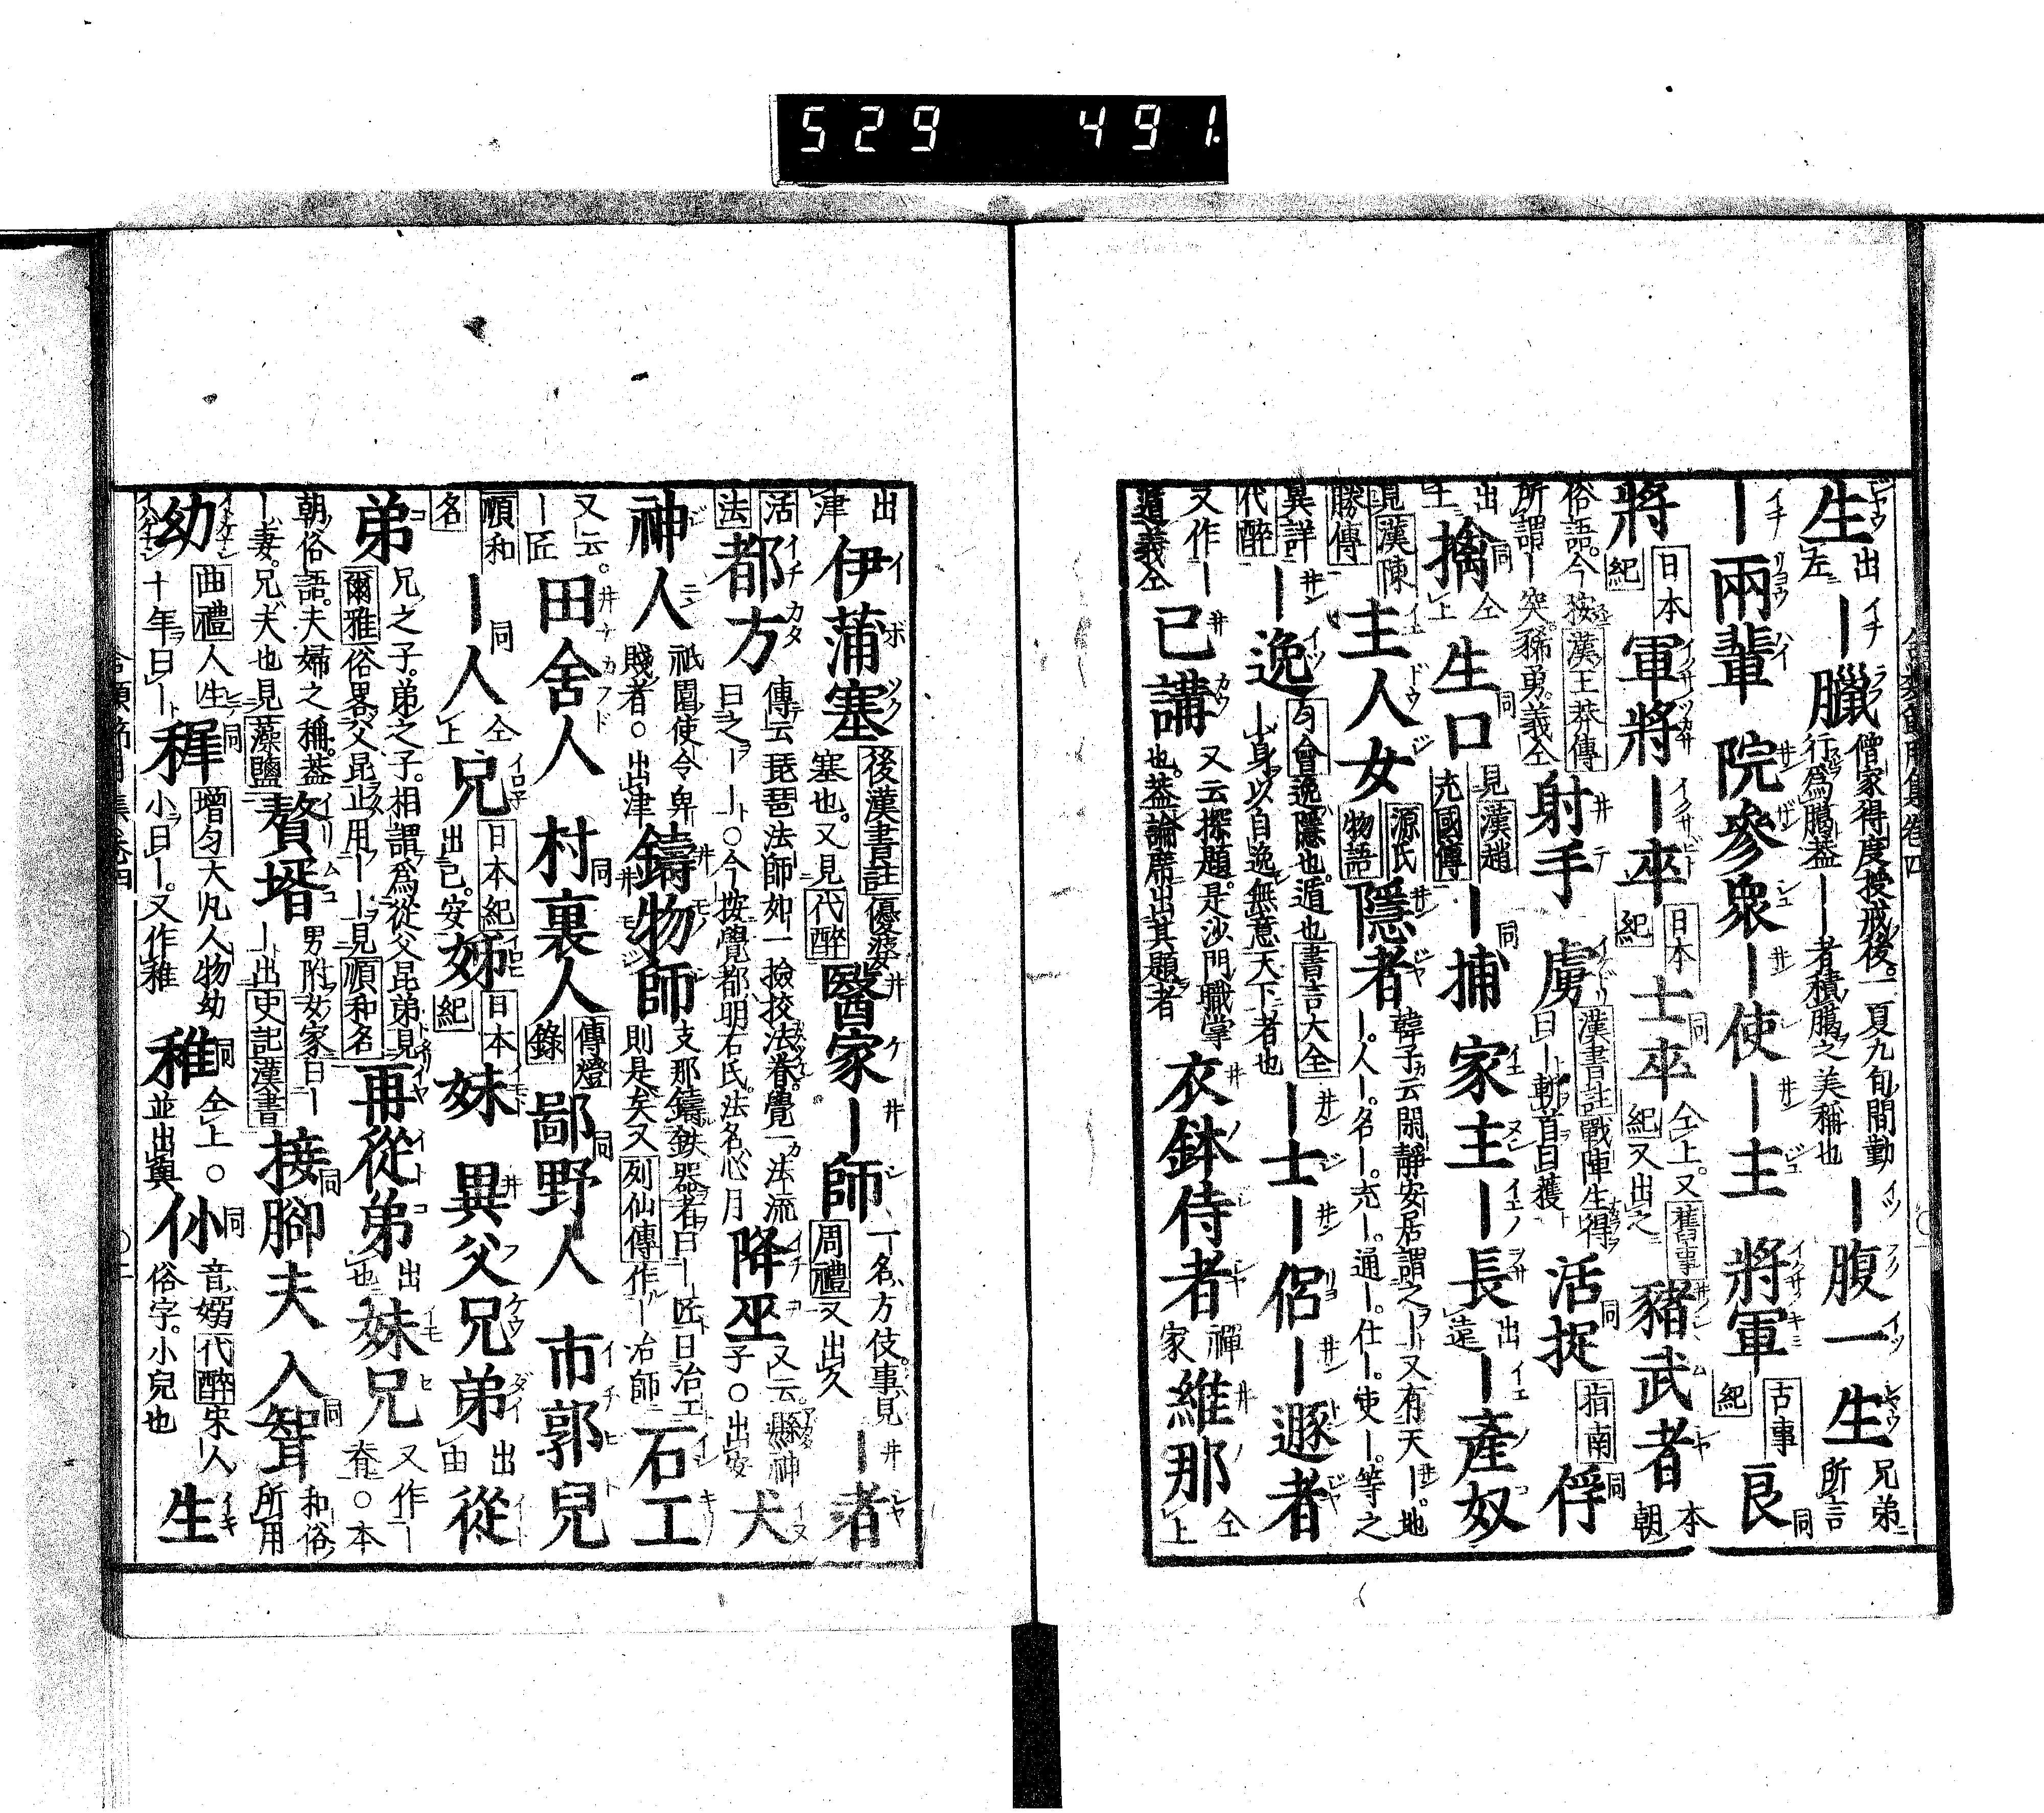 529 491.
合類節用集卷四
生 出左 ー臘 僧家得度授戒後。一夏九旬間勤行爲臘蓋ーー者積臘之美稱也 ー腹一生 兄弟所言
ー兩輩 院參衆 ー使 ー主 將軍 古事紀 良 同
將 日本紀 軍將 ー卒 日本紀 士卒 同 仝上。又舊事紀又出之 豬武者 本朝
俗語。今按漢王莽傳所謂ー突豨勇。義仝 射手 虜 漢書註戰陣生得曰ー斬首曰獲 活捉 同 指南 俘 同
出生 擒 同 仝上 生口 同 見漢趙充國傳 ー捕 同 家主 ー長 出遠 ー產奴
見漢陳勝傳 主人女 源氏物語 隱者 韓子云閑靜安居謂之ー又有天ー。地ー。人ー。名ー。充ー。通ー。仕ー。使ー。等之
異詳代醉 ー逸 勻會逸隱也。遁也書言大全ー身以自逸無意天下者也 ー士 ー侶 ー遯者
又作ー道義仝 已講 又云探題。是沙門職掌也。蓋論席出其題者 衣鉢侍者 禪家 維那 仝上
出津 伊蒲塞 後漢書註優婆塞也。又見代醉 醫家 ー師 一名方伎。事見周禮又出久 ー者
活法 都方 傳云琵琶法師如一撿挍法眷。覺一法流曰之ーー○今按覺都明石氏。法名心月 降巫 又云縣神子○出安 犬
神人 祇園使令卑賤者。出津 鑄物師 支那鑄鉄器者曰ー匠曰冶工則是矣又列仙傳作ー冶師 石工
又云。ー匠 田舍人 村裏人 同 傳燈錄 鄙野人 同 市郭兒
順和名 ー人 同 仝上 兄 日本紀出己。安 姊 日本紀 妹 異父兄弟 出由 從
弟 兄之子。弟之子。相謂爲從父昆弟見爾雅俗畧父昆止用ーー見順和名 再從弟 出也 妹兄 又作ー脊○本
朝俗語。夫婦之稱。蓋ー妻。兄夫也見藻鹽 贅壻 男附女家曰ーー出史記漢書 接腳夫 同 入聟 同 和俗所用
幼 曲禮人生十年曰ー 稺 同 增勻大凡人物幼小曰ー。又作稚 稚 同 仝上。○並出與 㣺 同 音嫋代醉宋ー人俗字。小兒也 生
合類節用集卷四